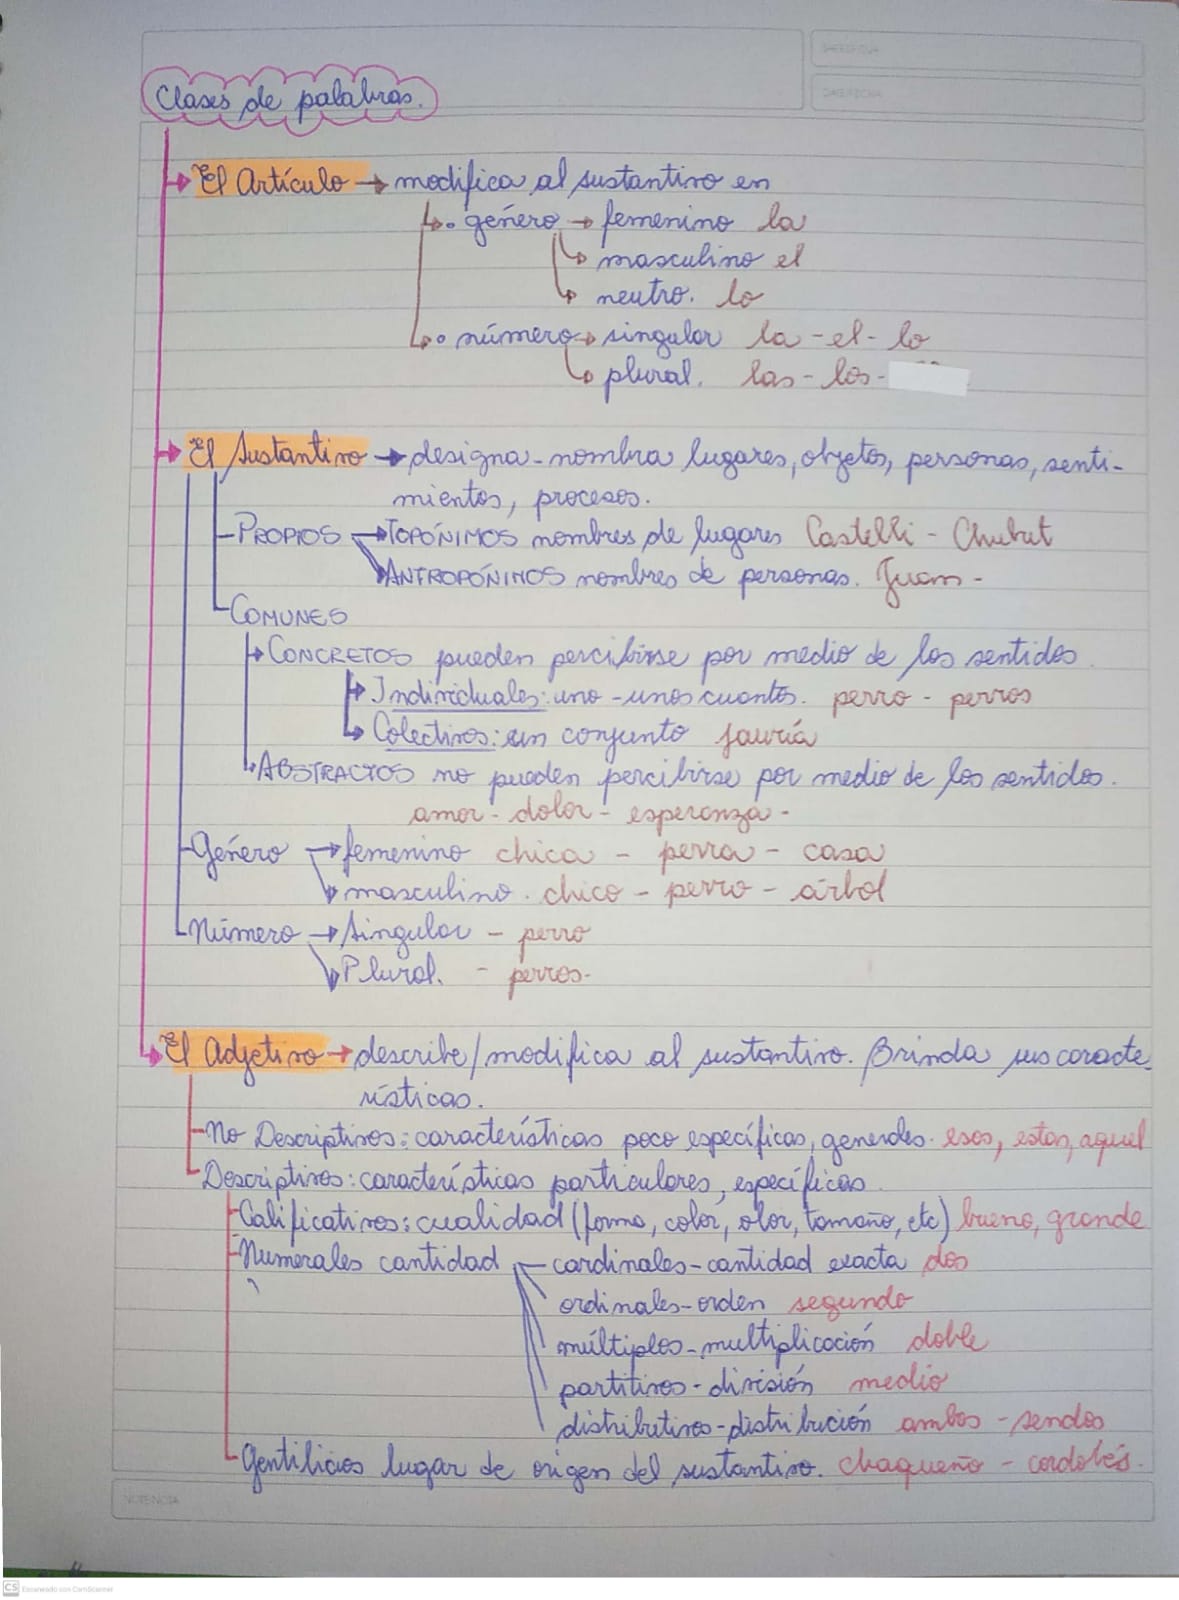 DATE/FECHA
DATE/FECHA
Clases de palabras.
El Artículo → modifica al sustantivo en
• género → femenino la
masculino el
neutro. lo
• número → singular la - el - lo
plural. las - los -
El Sustantivo → designa - nombra lugares, objetos, personas, senti-
mientos, procesos.
PROPIOS → TOPÓNIMOS nombres de lugares Castelli - Chubut
ANTROPÓNIMOS nombres de personas. Juan -
COMUNES
CONCRETOS pueden percibirse por medio de los sentidos.
Individuales: uno - unos cuantos. perro - perros
Colectivos: un conjunto jauría
ABSTRACTOS no pueden percibirse por medio de los sentidos.
amor - dolor - esperanza -
Género → femenino chica - perra - casa
masculino. chico - perro - árbol
Número → Singular - perro
Plural. - perros-
El Adjetivo → describe/modifica al sustantivo. Brinda sus caracte-
rísticas.
No Descriptivos: características poco específicas, generales. esos, estas, aquel
Descriptivos: características particulares, específicas.
Calificativos: cualidad (forma, color, olor, tamaño, etc) bueno, grande
Numerales cantidad cardinales - cantidad exacta dos
ordinales - orden segundo
múltiplos - multiplicación doble
partitivos - división medio
distributivos - distribución ambos - sendos
Gentilicios lugar de origen del sustantivo. chaqueño - cordobés.
NOTENCIA
CS Escaneado con CamScanner